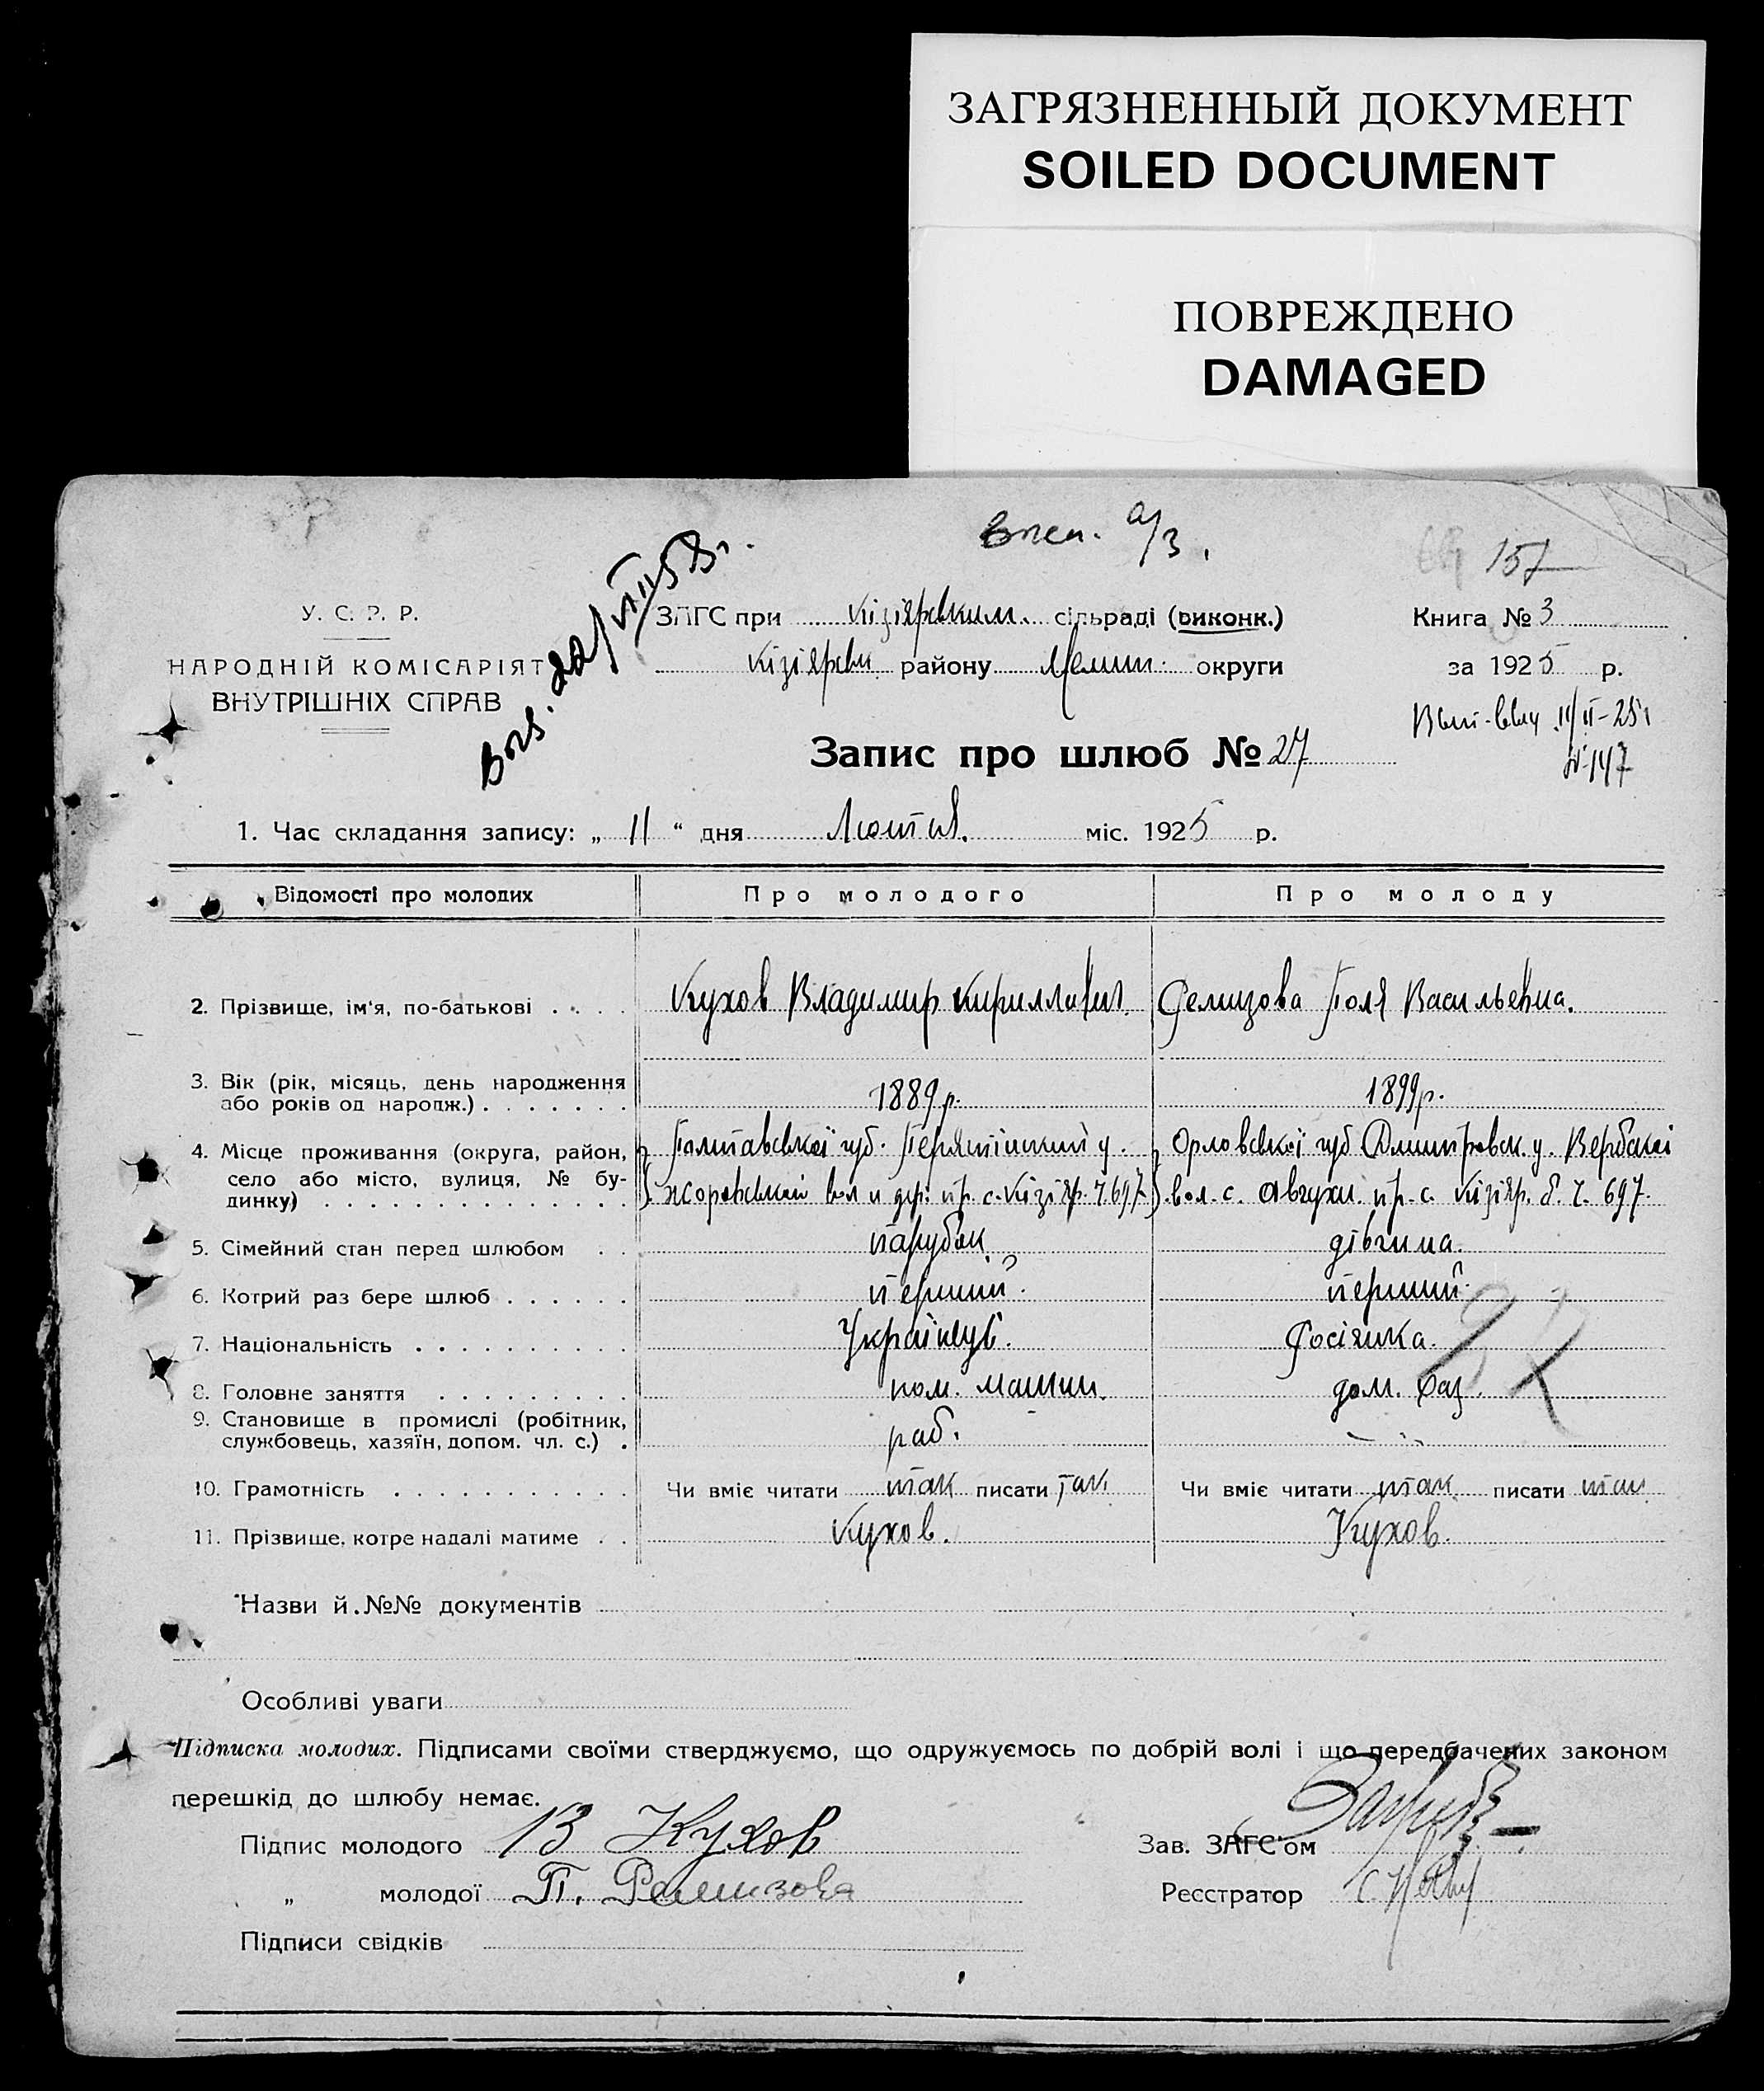 ЗАГРЯЗНЕННЫЙ ДОКУМЕНТ
SOILED DOCUMENT
ПОВРЕЖДЕНО
DAMAGED
157
У. С. Р. Р.
НАРОДНІЙ КОМІСАРІЯТ
ВНУТРІШНІХ СПРАВ
ЗАГС при Кізіярським сільраді (виконк.)
Кізіярськ району Мелит. округи
Книга № 3
за 1925 р.
11/II-25
№ 147
Запис про шлюб № 27
1. Час складання запису: „ 11 “ дня Лютня. міс. 1925 р.
Відомості про молодих Про молодого Про молоду
2. Прізвище, ім'я, по-батькові . . . . Кухов Владимир Кириллович. Ремизова Поля Васильевна.
3. Вік (рік, місяць, день народження
або років од народж.) . . . . . . . 1889 р. 1899 р.
4. Місце проживання (округа, район, Полтавської губ. Пирятинский у. Орловської губ Дмитровск. у. Вербской
село або місто, вулиця, № бу- пр. с. Кізіяр. ч. 697 вол. с. пр. с. Кізіяр. б. ч. 697.
динку) . . . . . . . . . . . . . .
5. Сімейний стан перед шлюбом . . парубок дівчина.
6. Котрий раз бере шлюб . . . . . . перший. перший.
7. Національність . . . . . . . . . . Українець. Росіянка.
8. Головне заняття . . . . . . . . . пом. машин. дом. хаз.
9. Становище в промислі (робітник,
службовець, хазяїн, допом. чл. с.) . раб.
10. Грамотність . . . . . . . . . . . Чи вміє читати так писати так Чи вміє читати так писати так
11. Прізвище, котре надалі матиме . . Кухов. Кухов.
Назви й №№ документів
Особливі уваги
Підписка молодих. Підписами своїми стверджуємо, що одружуємось по добрій волі і що передбачених законом
перешкід до шлюбу немає.
Підпис молодого В Кухов Зав. ЗАГС'ом
„ молодої П. Ремизова Реєстратор
Підписи свідків